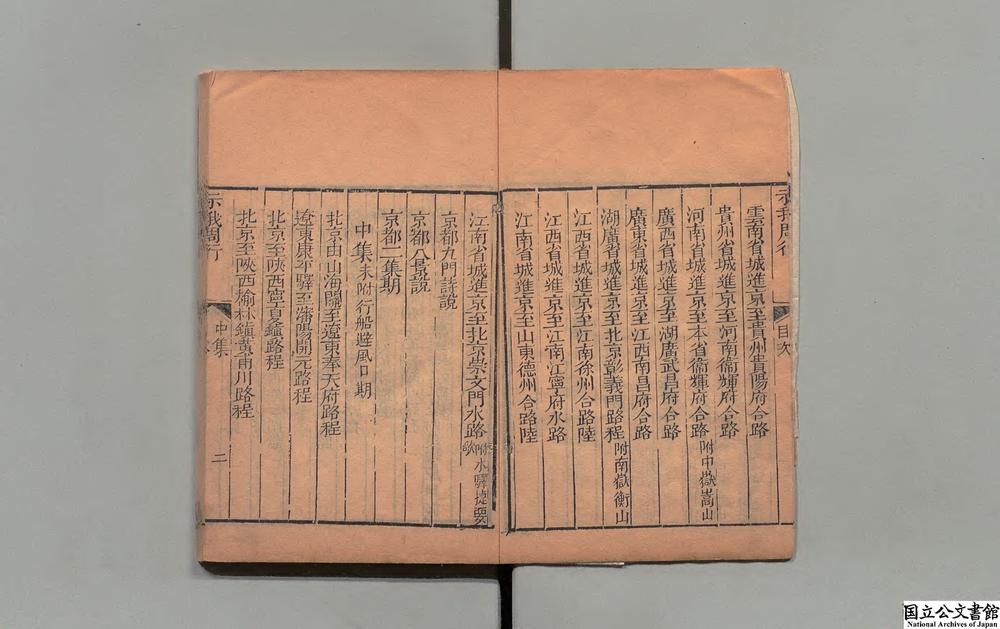 示我周行
目次
雲南省城進京至貴州貴陽府合路
貴州省城進京至河南衞輝府合路
河南省城進京至本省衞輝府合路附中嶽嵩山
廣西省城進京至湖廣武昌府合路
廣東省城進京至江西南昌府合路
湖廣省城進京至北京彰義門路程附南嶽衡山
江西省城進京至江南徐州合路陸
江西省城進京至江南江寧府水路
江南省城進京至山東德州合路陸
江南省城進京至北京崇文門水路附水驛捷要歌
京都九門詩說
京都八景說
京都二集期
中集末附行船避風日期
北京由山海關至遼東奉天府路程
遼東廣寧驛至瀋陽開元路程
北京至陜西寧夏鎮路程
北京至陜西榆林鎮黃甫川路程
示我周行
中集
二
国立公文書館
National Archives of Japan